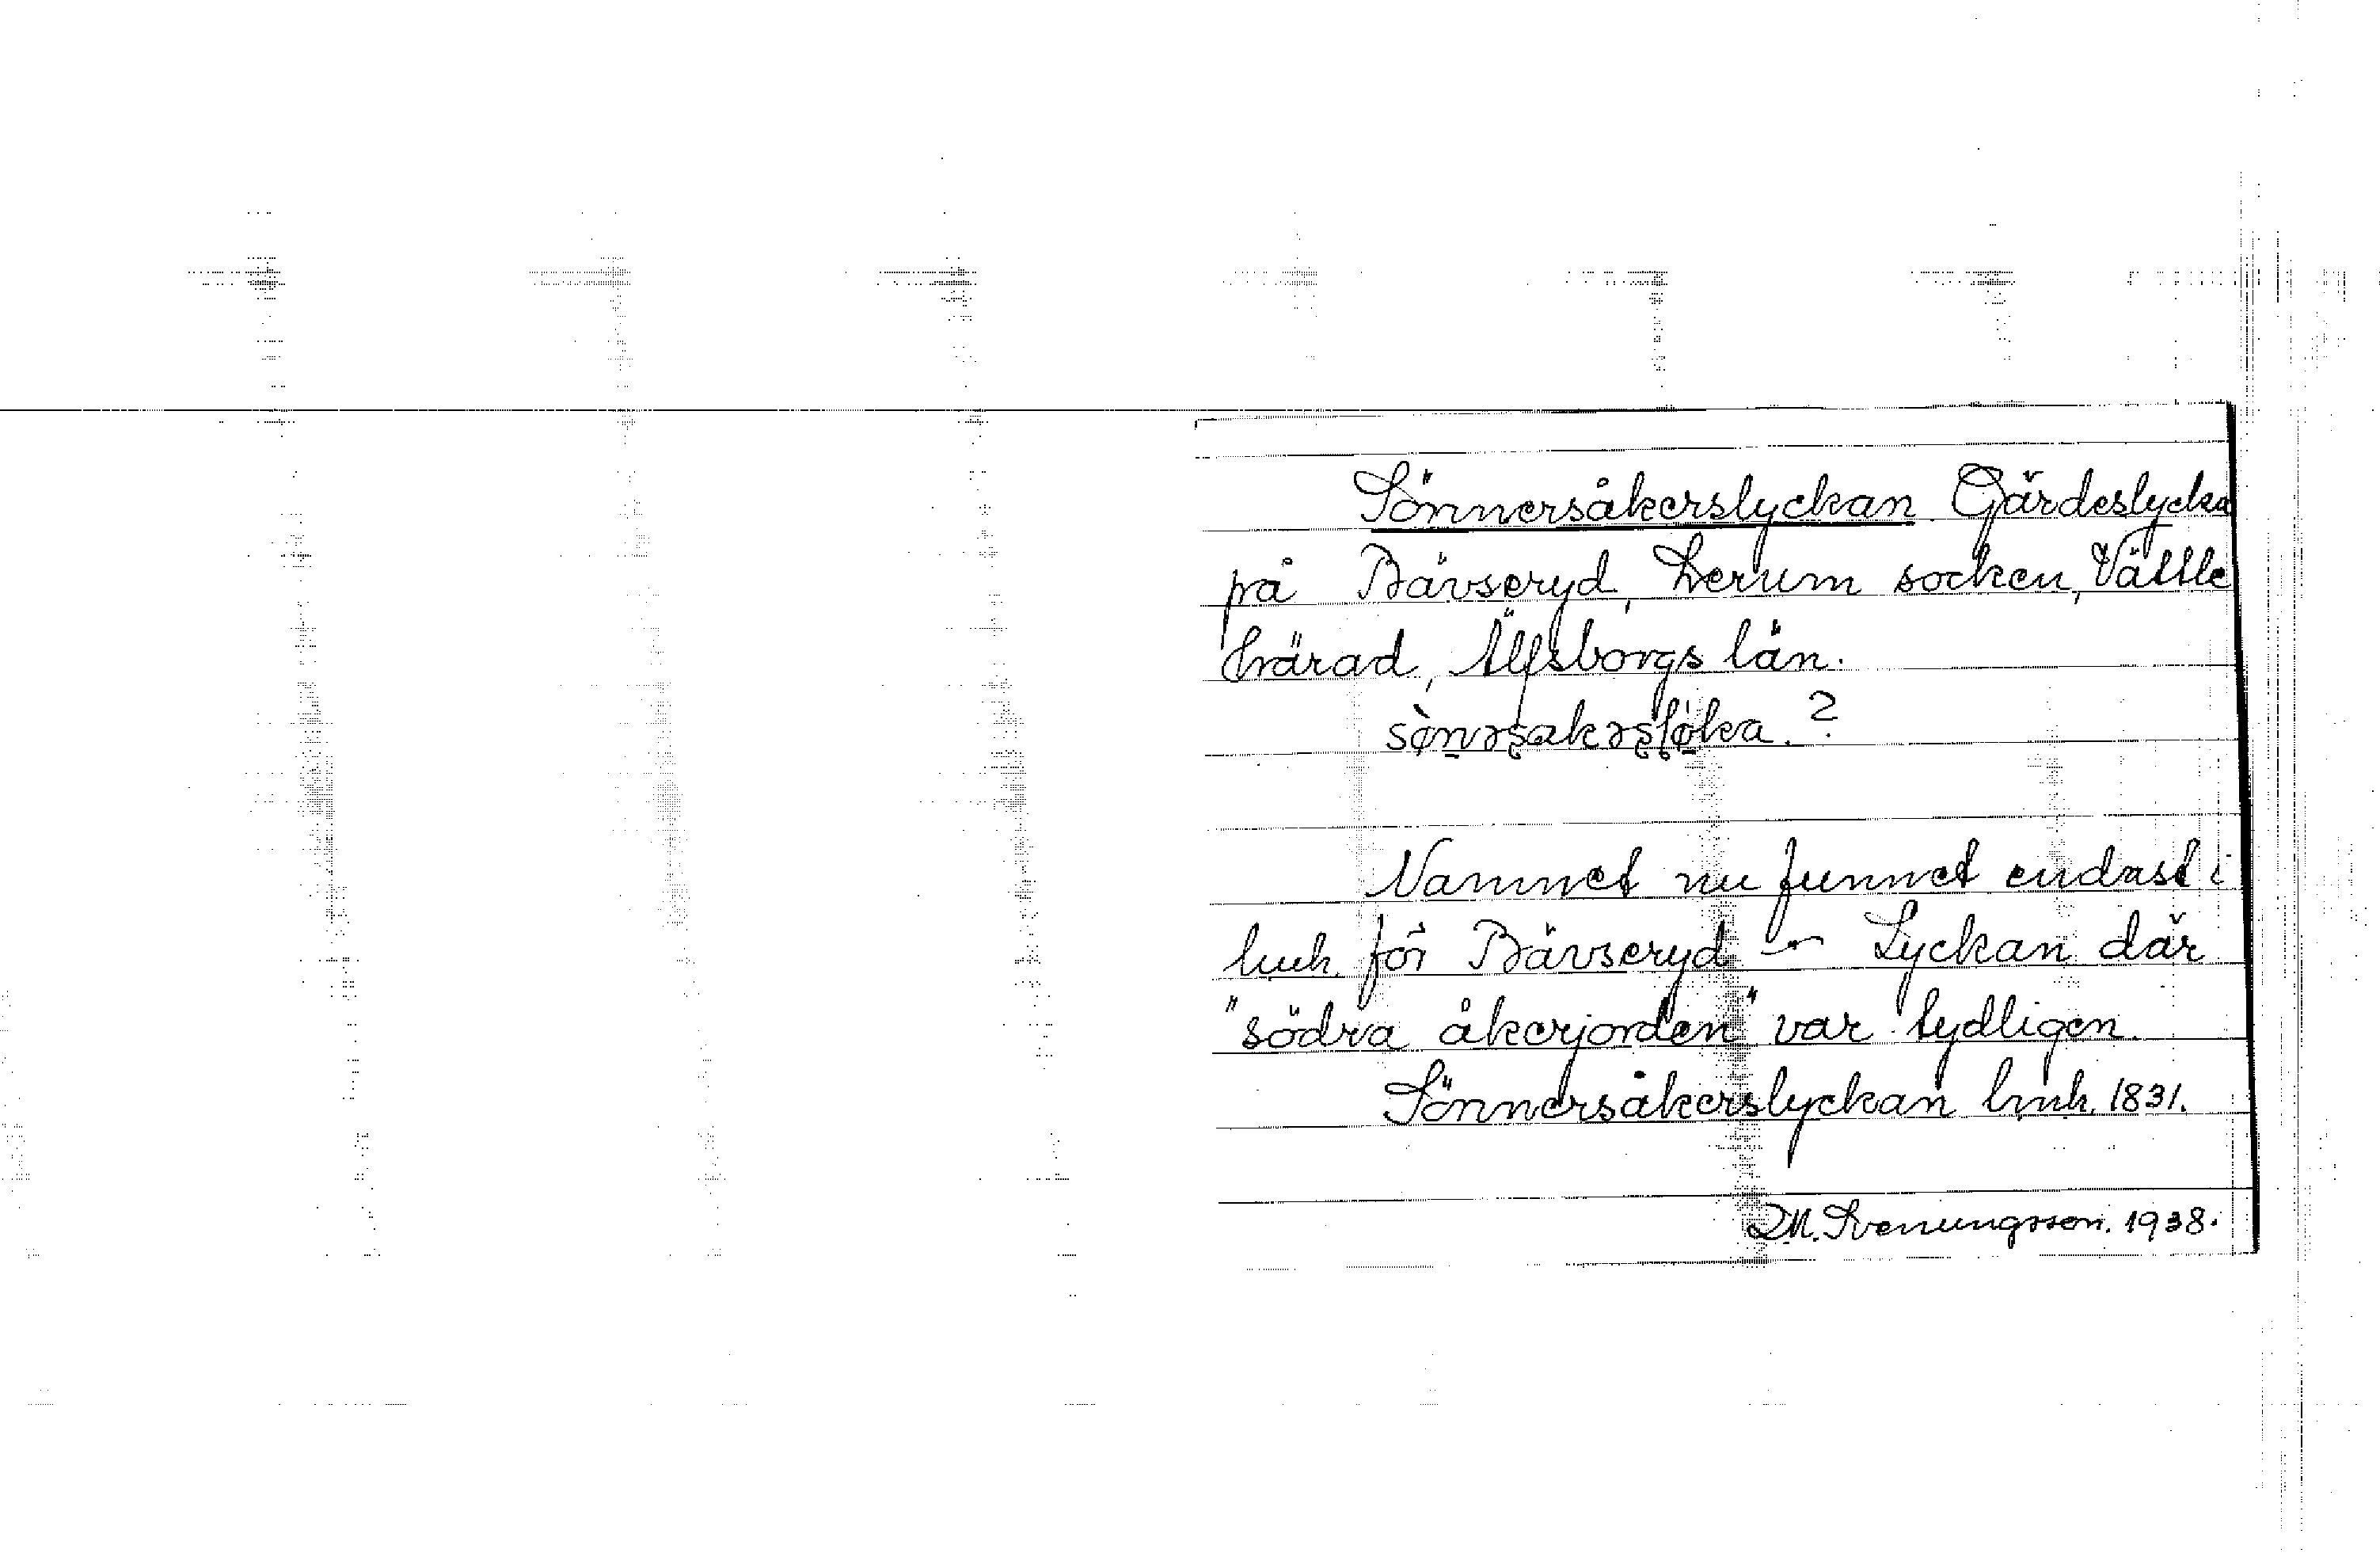 Sönnersåkerslyckan Gärdeslycka
på Bävseryd, Lerum socken, Vättle
härad, Älfsborgs län.
?
Namnet nu funnet endast i
hmh för Bävseryd – Lyckan där
"södra åkerjorden" var tydligen.
Sönnersåkerslyckan hmh. 1831.
D.M. Svenungsson. 1938.